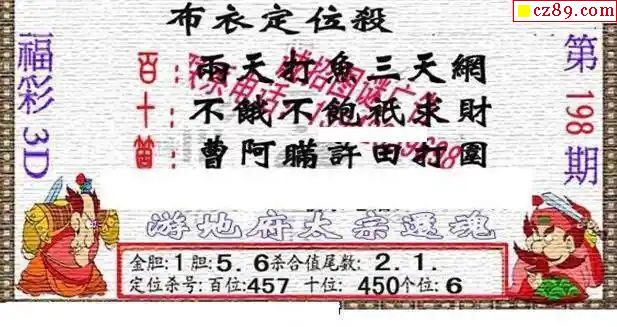 cz89.com
布衣定位殺
福彩3D
第198期
百：兩天打魚三天網
十：不餓不飽祇求財
箇：曹阿瞞許田打圍
游地府太宗還魂
金胆:1胆:5.6杀合值尾数:2.1.
定位杀号:百位:457 十位:450个位:6